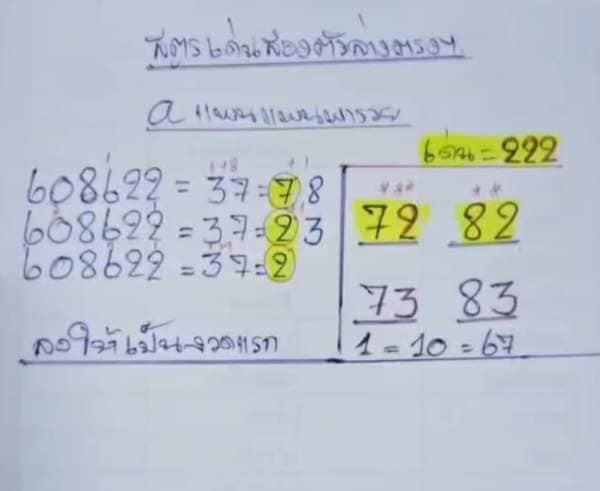 สูตรเด่นสองตัวล่างตรงๆ
a แพนแพนพารวย
เด่น = 222
608622 = 37 = 78
608622 = 37 = 23
608622 = 37 = 2
72 82
73 83
1 = 10 = 67
ลงให้เป็นงวดแรก